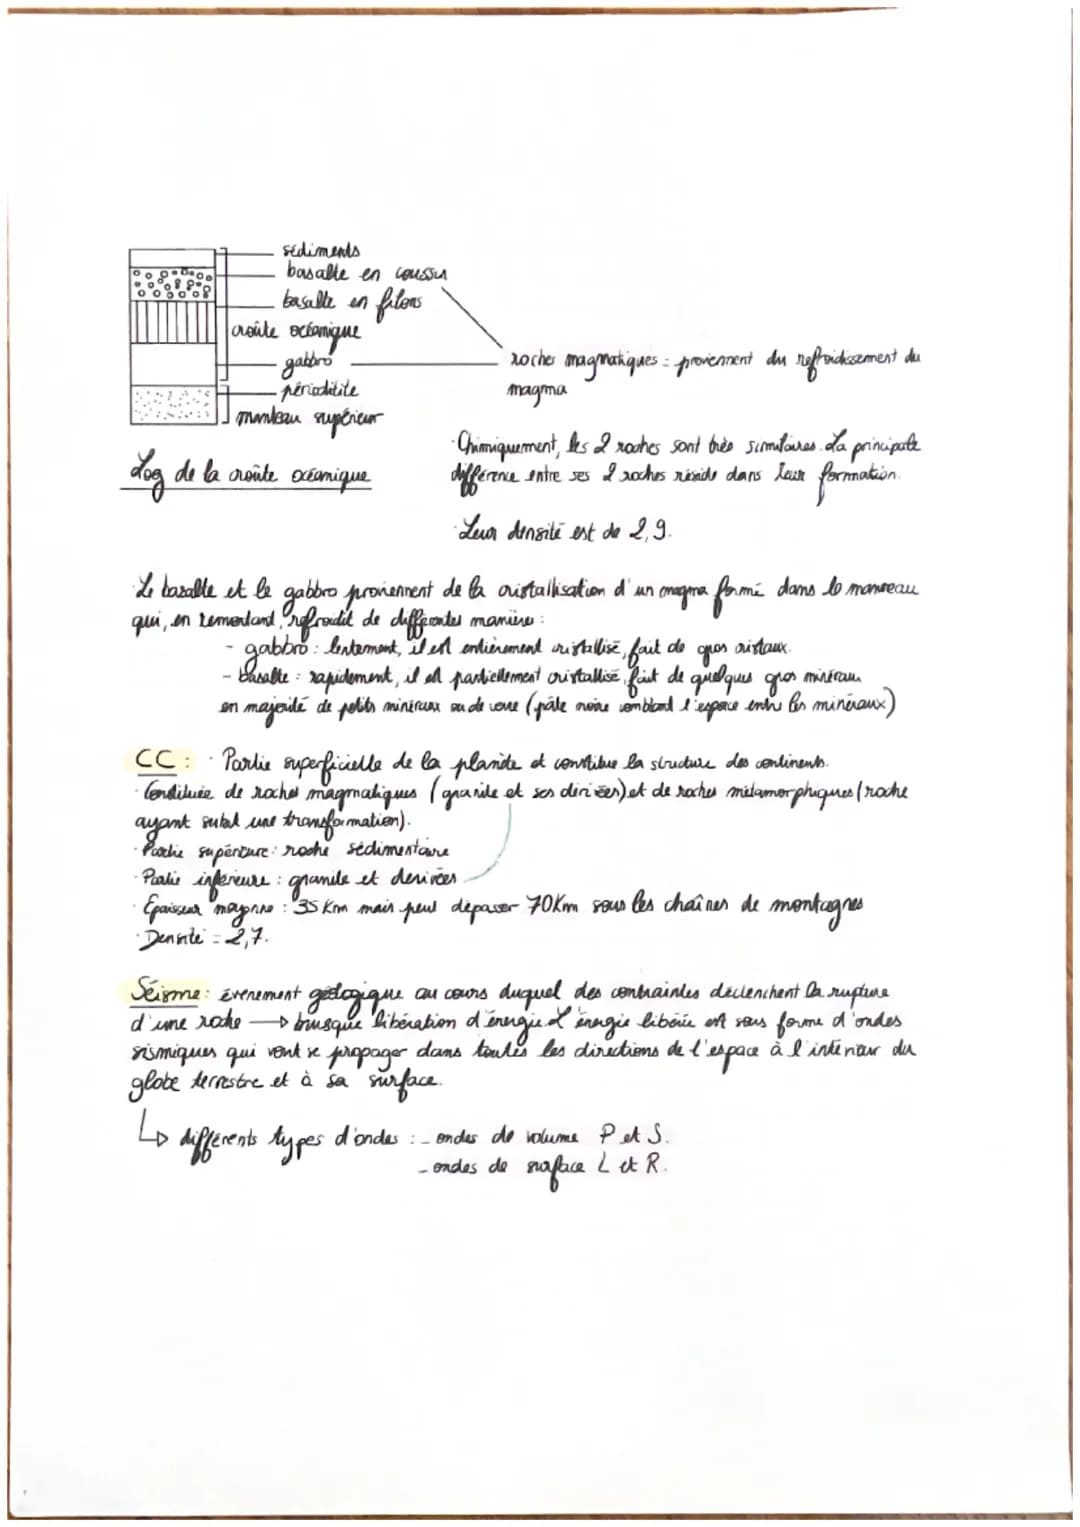 sédiments
basalte en coussin
basalte en filons
croûte océanique
gabbro
roches magmatiques = proviennent du refroidissement du
magma
périoditite
manteau supérieur
Log de la croûte océanique
· Chimiquement, les 2 roches sont très similaires. La principale
différence entre ses 2 roches réside dans leur formation.
· Leur densité est de 2,9.
· Le basalte et le gabbro proviennent de la cristallisation d'un magma formé dans le manteau
qui, en remontant, refroidit de différentes manière :
- gabbro : lentement, il est entièrement cristallisé, fait de gros cristaux.
- basalte : rapidement, il est partiellement cristallisé, fait de quelques gros minéraux
en majorité de petits minéraux ou de verre (pâte noire comblant l'espace entre les minéraux)
CC : · Partie superficielle de la planète et constitue la structure des continents.
· Constituée de roches magmatiques (granite et ses dérivées) et de roches métamorphiques (roche
ayant subit une transformation).
· Partie supérieure : roche sédimentaire
· Partie inférieure : granite et derivées
· Épaisseur moyenne : 35 Km mais peut dépasser 70Km sous les chaînes de montagnes
· Densité = 2,7.
Séisme : évenement géologique au cours duquel des contraintes déclenchent la rupture
d'une roche → brusque libération d'énergie. L'énergie libérée est sous forme d'ondes
sismiques qui vont se propager dans toutes les directions de l'espace à l'intérieur du
globe terrestre et à sa surface.
↳ différents types d'ondes : - ondes de volume P et S.
- ondes de surface L et R.